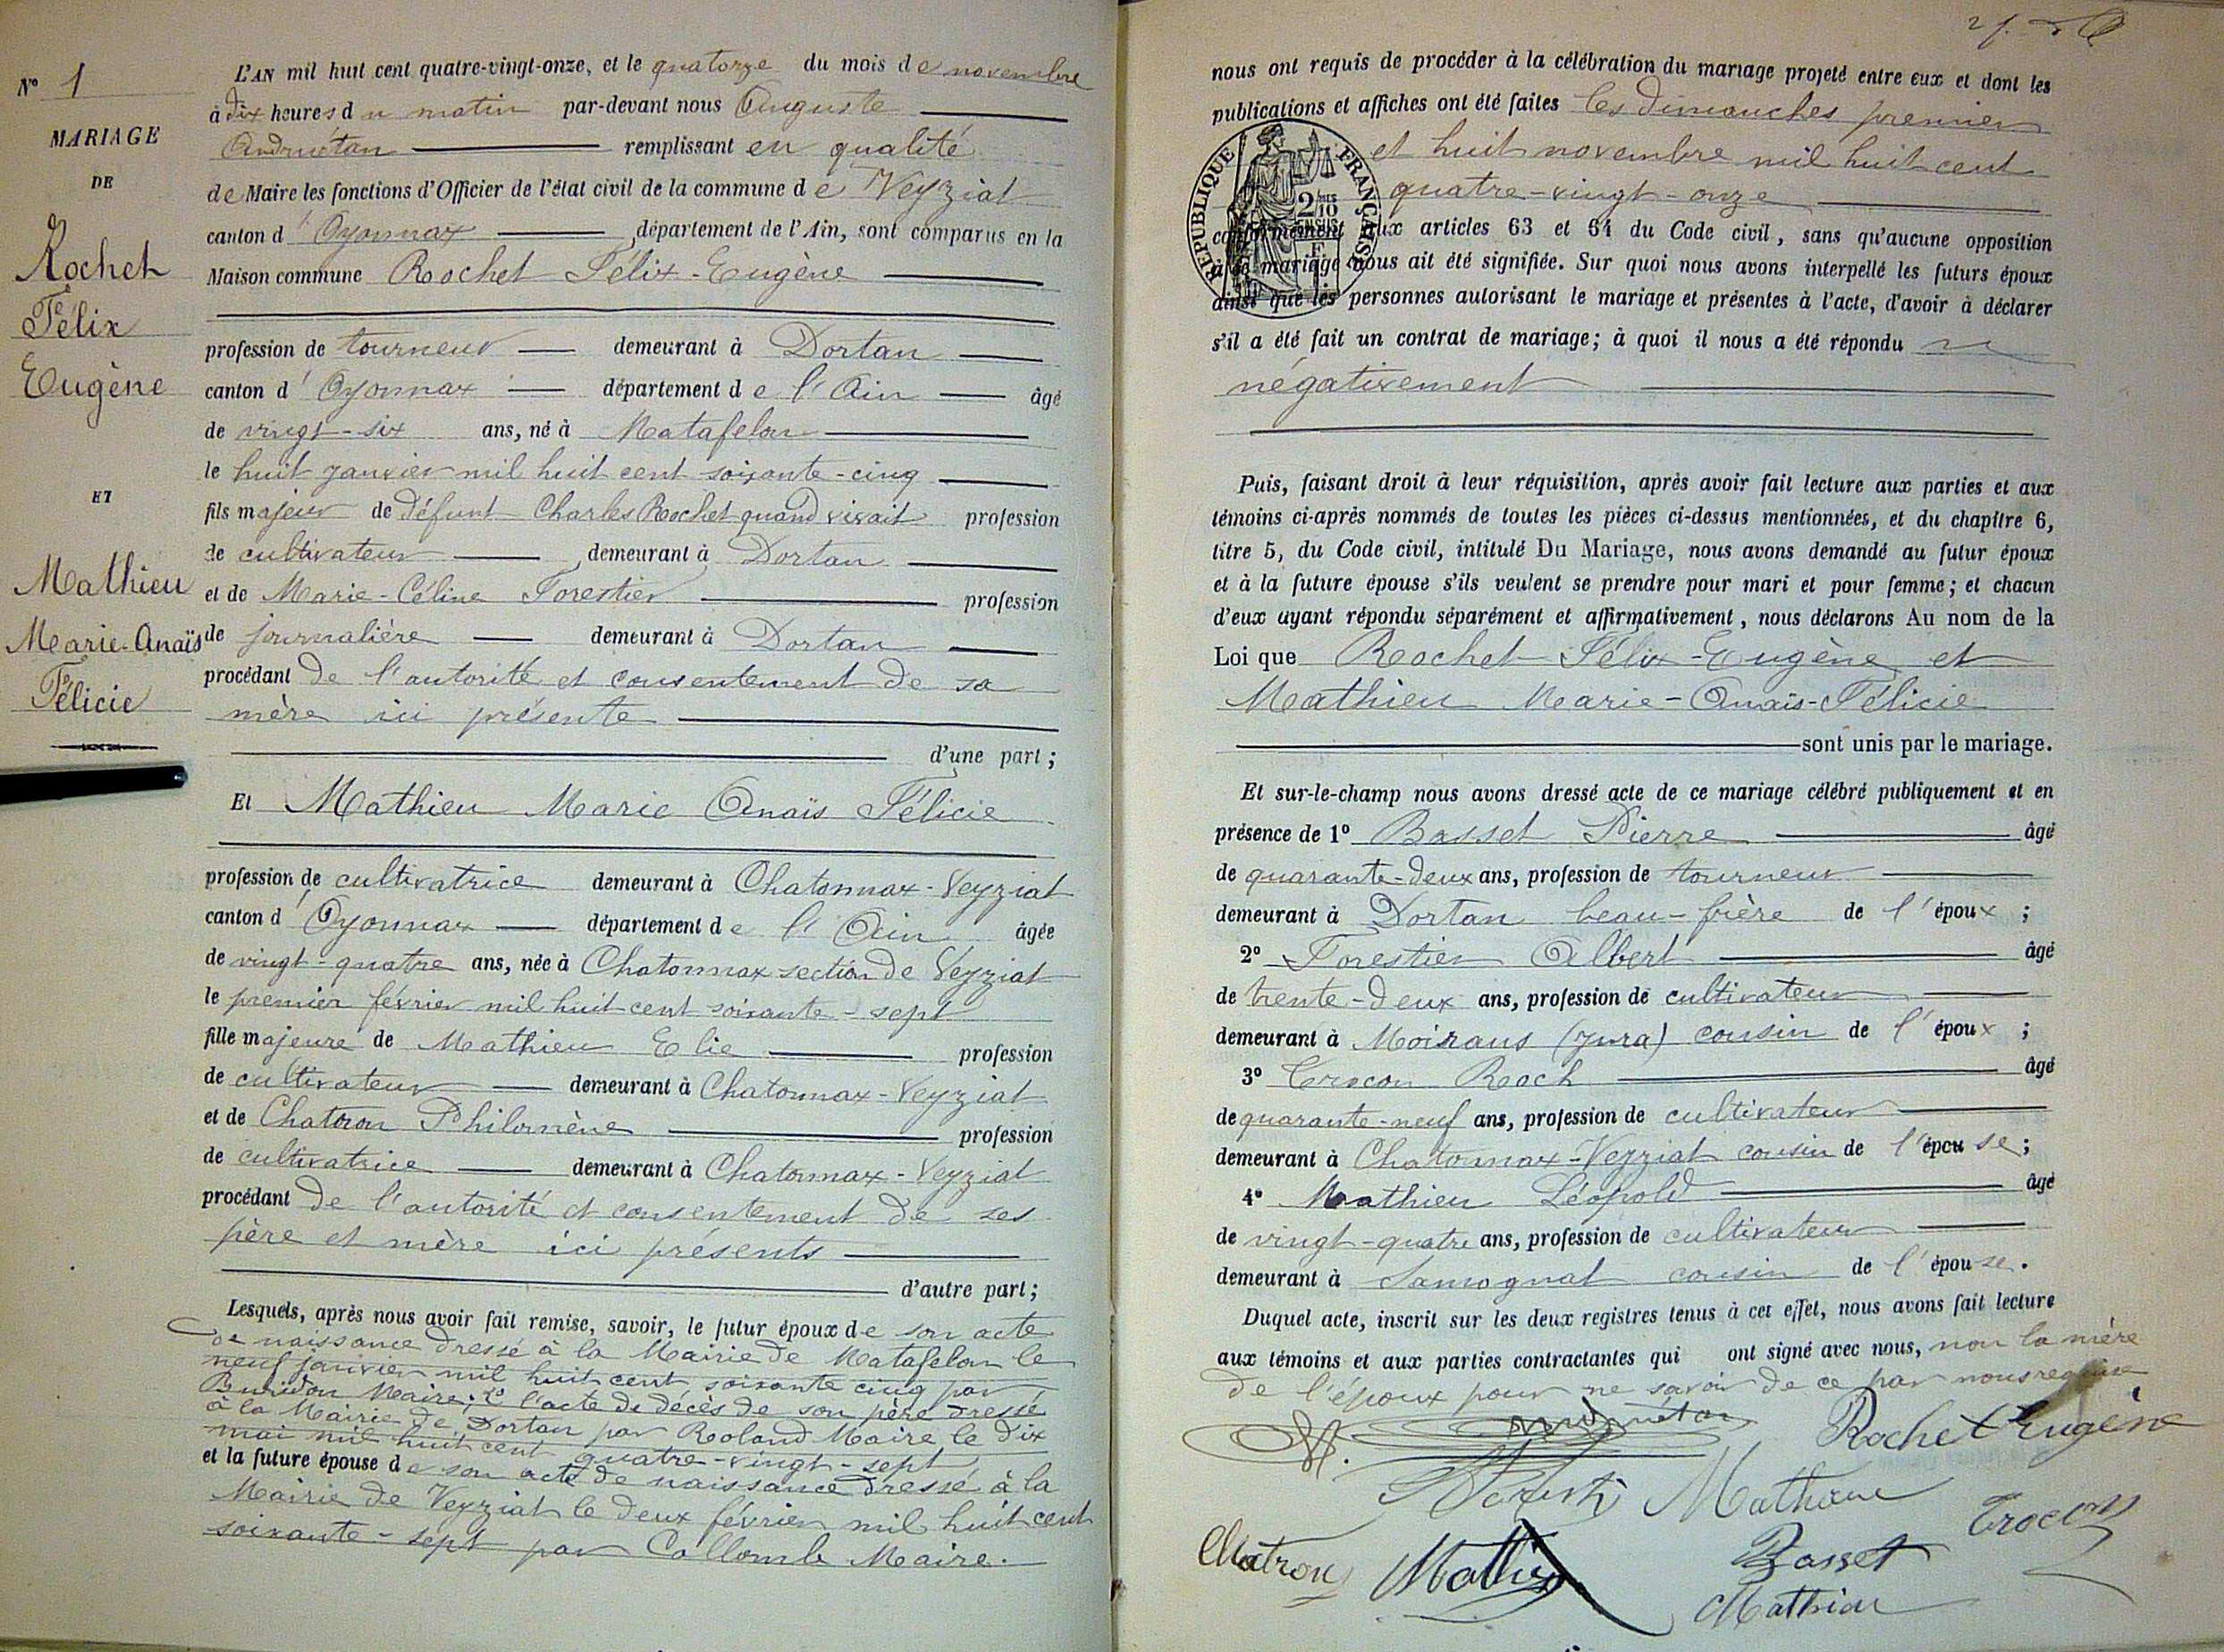 Nº 1
MARIAGE
DE
Rochet
Félix
Eugène
ET
Mathieu
Marie-Anaïs
Félicie
L'AN mil huit cent quatre-vingt-onze, et le quatorze du mois de novembre
à dix heures du matin par-devant nous Auguste
Andruétan remplissant en qualité
de Maire les fonctions d'Officier de l'état civil de la commune de Veyziat
canton d'Oyonnax, département de l'Ain, sont comparus en la
Maison commune Rochet Félix-Eugène
profession de tourneur demeurant à Dortan
canton d'Oyonnax département de l'Ain âgé
de vingt-six ans, né à Matafelon
le huit janvier mil huit cent soixante-cinq
fils majeur de défunt Charles Rochet quand vivait profession
de cultivateur, demeurant à Dortan
et de Marie-Céline Forestier profession
de journalière demeurant à Dortan
procédant de l'autorité et consentement de sa
mère ici présente
d'une part;
Et Mathieu Marie Anaïs Félicie
profession de cultivatrice demeurant à Chatonnax-Veyziat
canton d'Oyonnax département de l'Ain âgée
de vingt-quatre ans, née à Chatonnax section de Veyziat
le premier février mil huit cent soixante-sept
fille majeure de Mathieu Elie profession
de cultivateur demeurant à Chatonnax-Veyziat
et de Chatron Philomène profession
de cultivatrice demeurant à Chatonnax-Veyziat
procédant de l'autorité et consentement de ses
père et mère ici présents
d'autre part;
Lesquels, après nous avoir fait remise, savoir, le futur époux de son acte
de naissance dressé à la Mairie de Matafelon le
neuf janvier mil huit cent soixante cinq par
Buridon Maire; 2º l'acte de décès de son père dressé
à la Mairie de Dortan par Roland Maire le dix
mai mil huit cent quatre-vingt-sept
et la future épouse de son acte de naissance dressé à la
Mairie de Veyziat le deux février mil huit cent
soixante-sept par Collomb Maire.
nous ont requis de procéder à la célébration du mariage projeté entre eux et dont les
publications et affiches ont été faites les dimanches premier
et huit novembre mil huit cent
quatre-vingt-onze
conformément aux articles 63 et 64 du Code civil, sans qu'aucune opposition
à ce mariage nous ait été signifiée. Sur quoi nous avons interpellé les futurs époux
ainsi que les personnes autorisant le mariage et présentes à l'acte, d'avoir à déclarer
s'il a été fait un contrat de mariage; à quoi il nous a été répondu
négativement
RÉPUBLIQUE FRANÇAISE
2/10
EN SUS
Puis, faisant droit à leur réquisition, après avoir fait lecture aux parties et aux
témoins ci-après nommés de toutes les pièces ci-dessus mentionnées, et du chapitre 6,
titre 5, du Code civil, intitulé Du Mariage, nous avons demandé au futur époux
et à la future épouse s'ils veulent se prendre pour mari et pour femme; et chacun
d'eux ayant répondu séparément et affirmativement, nous déclarons Au nom de la
Loi que Rochet Félix-Eugène et
Mathieu Marie-Anaïs-Félicie
sont unis par le mariage.
Et sur-le-champ nous avons dressé acte de ce mariage célébré publiquement et en
présence de 1º Basset Pierre âgé
de quarante-deux ans, profession de tourneur
demeurant à Dortan beau-frère de l'époux;
2º Forestier Albert âgé
de trente-deux ans, profession de cultivateur
demeurant à Moirans (Jura) cousin de l'époux;
3º Crocon Roch âgé
de quarante-neuf ans, profession de cultivateur
demeurant à Chatonnax-Veyziat cousin de l'épouse;
4º Mathieu Léopold âgé
de vingt-quatre ans, profession de cultivateur
demeurant à Samognat cousin de l'épouse.
Duquel acte, inscrit sur les deux registres tenus à cet effet, nous avons fait lecture
aux témoins et aux parties contractantes qui ont signé avec nous, non la mère
de l'époux pour ne savoir de ce par nous requise
Andruétan
Rochet Eugène
Mathieu
Crocon
Chatron
Mathieu
Basset
Mathieu